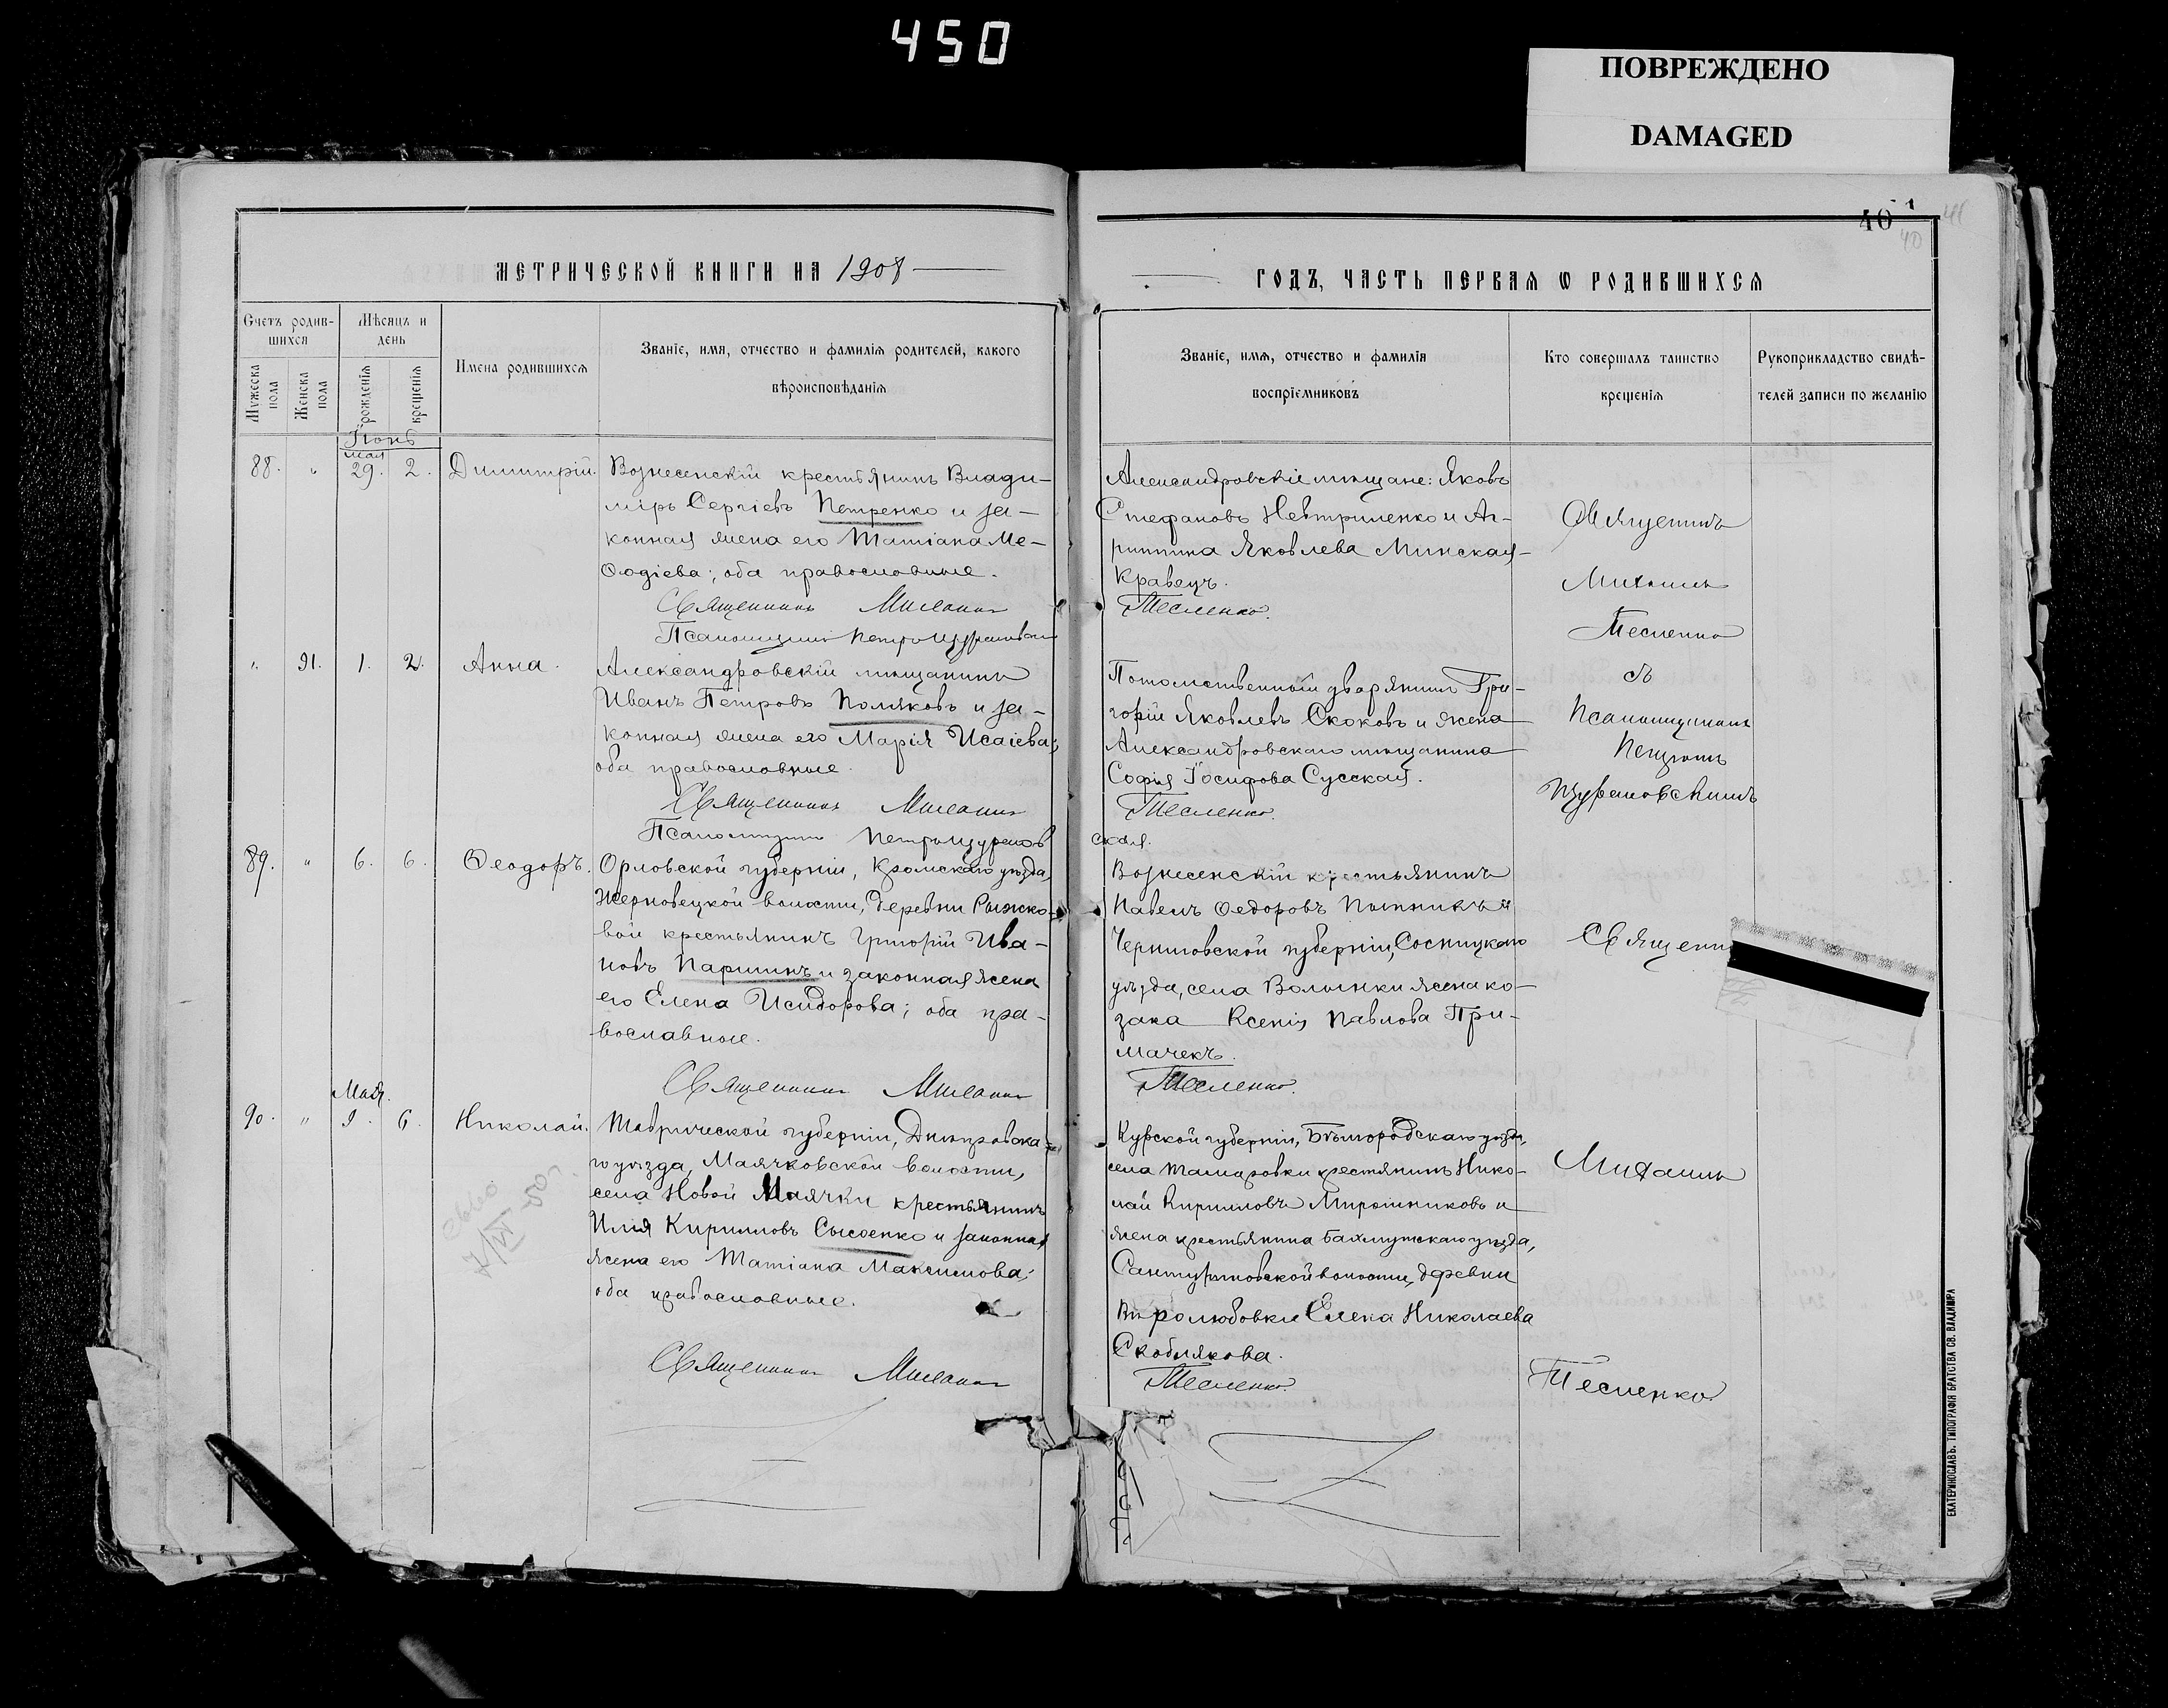 450
ПОВРЕЖДЕНО
DAMAGED
МЕТРИЧЕСКОЙ КНИГИ НА 1908
Счетъ родив-
шихся
Мѣсяцъ и
день
Мужеска
пола
Женска
пола
рожденія
крещенія
Имена родившихся
Званіе, имя, отчество и фамилія родителей, какого
вѣроисповѣданія
Іюнь
мая
88. " 29. 2. Димитрій.
Вознесенскій крестьянинъ Влади-
міръ Сергіевъ Петренко и за-
конная жена его Татіана Ме-
ѳодіева; оба православные.
Священникъ
Псаломщикъ Петръ
" 91. 1. 2. Анна.
Александровскій мѣщанинъ
Иванъ Петровъ Поляковъ и за-
конная жена его Марія Исаіева;
оба православные.
Священникъ
Псаломщикъ Петръ
89. " 6. 6. Ѳеодоръ.
Орловской губерніи, Кромскаго уѣзда,
Жерновецкой волости, деревни Рыжко-
вой крестьянинъ Григорій Ива-
новъ Паршинъ и законная жена
его Елена Исидорова; оба пра-
вославные.
Священникъ
Мая.
90. " 9. 6. Николай.
Таврической губерніи, Днѣпровска-
го уѣзда, Маячковской волости,
села Новой Маячки крестьянинъ
Илія Кирилловъ Сысоенко и законная
жена его Татіана Максимова;
оба православные.
Священникъ
40
41
40
ГОДЪ, ЧАСТЬ ПЕРВАЯ Ѡ РОДИВШИХСЯ
Званіе, имя, отчество и фамилія
воспріемниковъ
Кто совершалъ таинство
крещенія
Рукоприкладство свидѣ-
телей записи по желанію
Александровскіе мѣщане: Яковъ
Стефановъ и Аг-
риппина Яковлева Минская-
Кравецъ.
Тесленко.
Потомственный дворянинъ Гри-
горій Яковлевъ Скоковъ и жена
Александровскаго мѣщанина
Софія Іосифова Сусская.
Тесленко.
ская.
Вознесенскій крестьянинъ
Павелъ Ѳедоровъ и
Черниговской губерніи, Сосницкаго
уѣзда, села Волынки жена ко-
зака Ксенія Павлова При-
мачекъ.
Тесленко.
Курской губерніи, Бѣлгородскаго уѣзда,
села Тамаровки крестьянинъ Нико-
лай Кирилловъ Мирошниковъ и
жена крестьянина Бахмутскаго уѣзда,
Сантуриновской волости, деревни
Вѣролюбовки Елена Николаева
Скоблякова.
Тесленко.
Священникъ
Михаилъ
Тесленко
съ
Псаломщикомъ
Петромъ
Щурановскимъ
Священ
Михаилъ
Тесленко
ЕКАТЕРИНОСЛАВЪ. ТИПОГРАФІЯ БРАТСТВА СВ. ВЛАДИМІРА